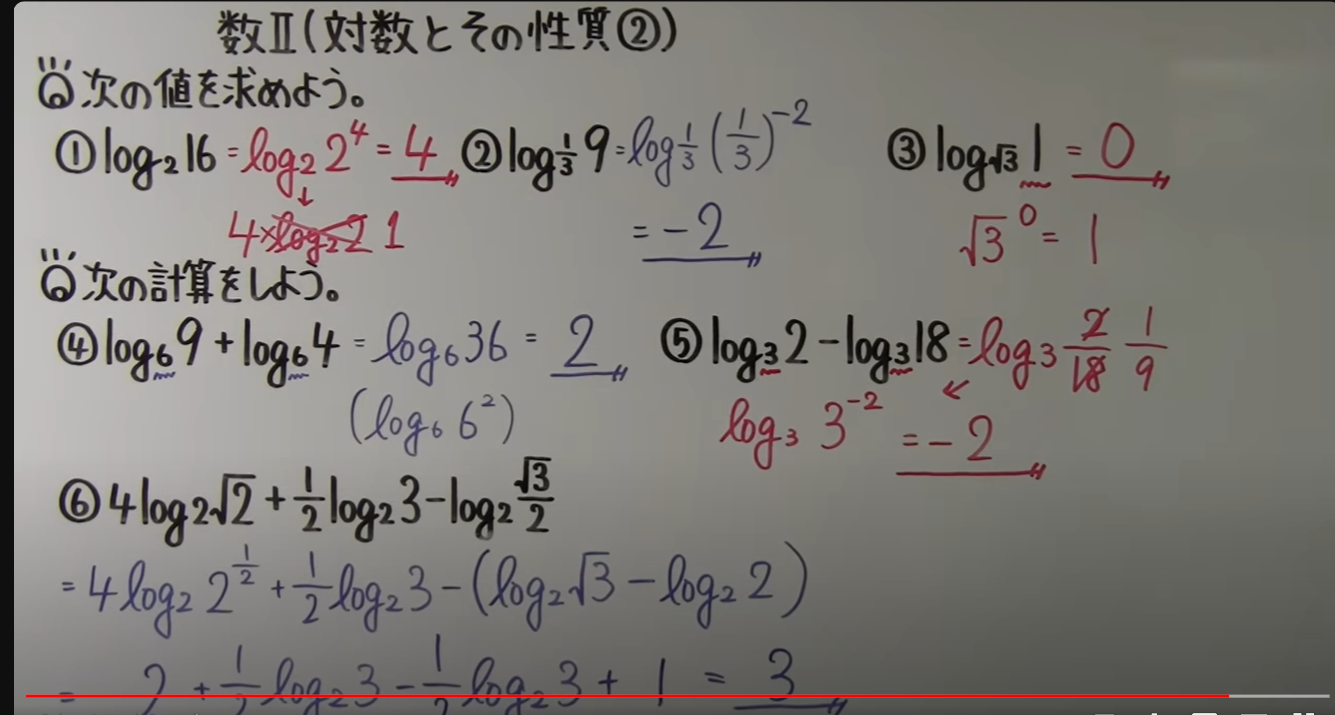 数Ⅱ(対数とその性質②)
Q 次の値を求めよう。
①log₂16=log₂2⁴=4 ②log_{1/3}9=log_{1/3}(1/3)⁻² ③log_{√3}1=0
4×log₂2 1 =-2 √3⁰=1
Q 次の計算をしよう。
④log₆9+log₆4=log₆36=2 ⑤log₃2-log₃18=log₃2/18 1/9
(log₆6²) log₃3⁻²=-2
⑥4log₂√2+1/2log₂3-log₂√3/2
=4log₂2^{1/2}+1/2log₂3-(log₂√3-log₂2)
= 2+1/2log₂3-1/2log₂3+1=3